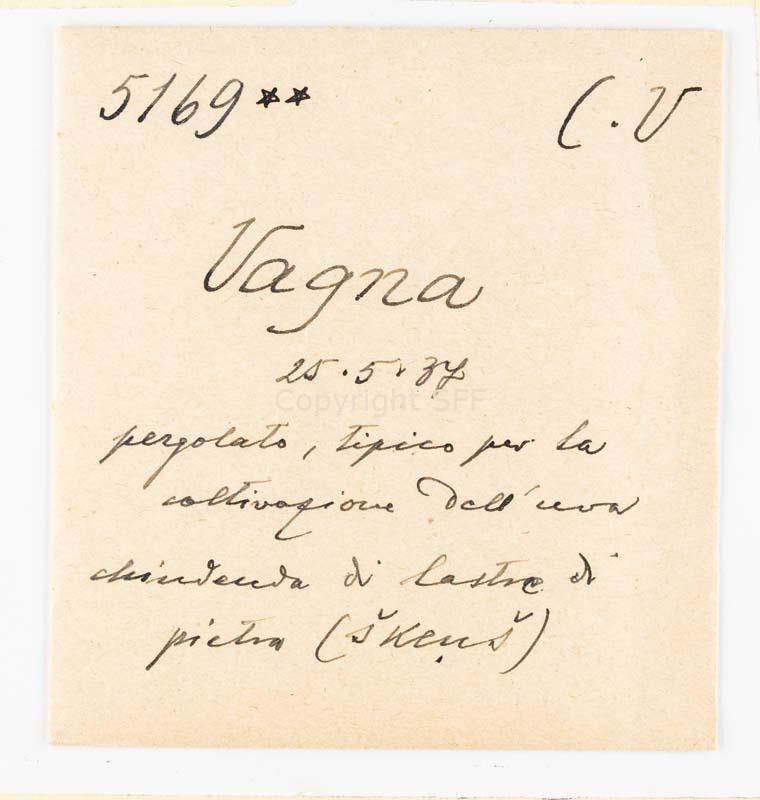 5169** C.V
Vagna
25.5.37
Copyright SFF
pergolato, tipico per la
coltivazione dell'uva
chiudenda di lastre di
pietra (škẹuš)